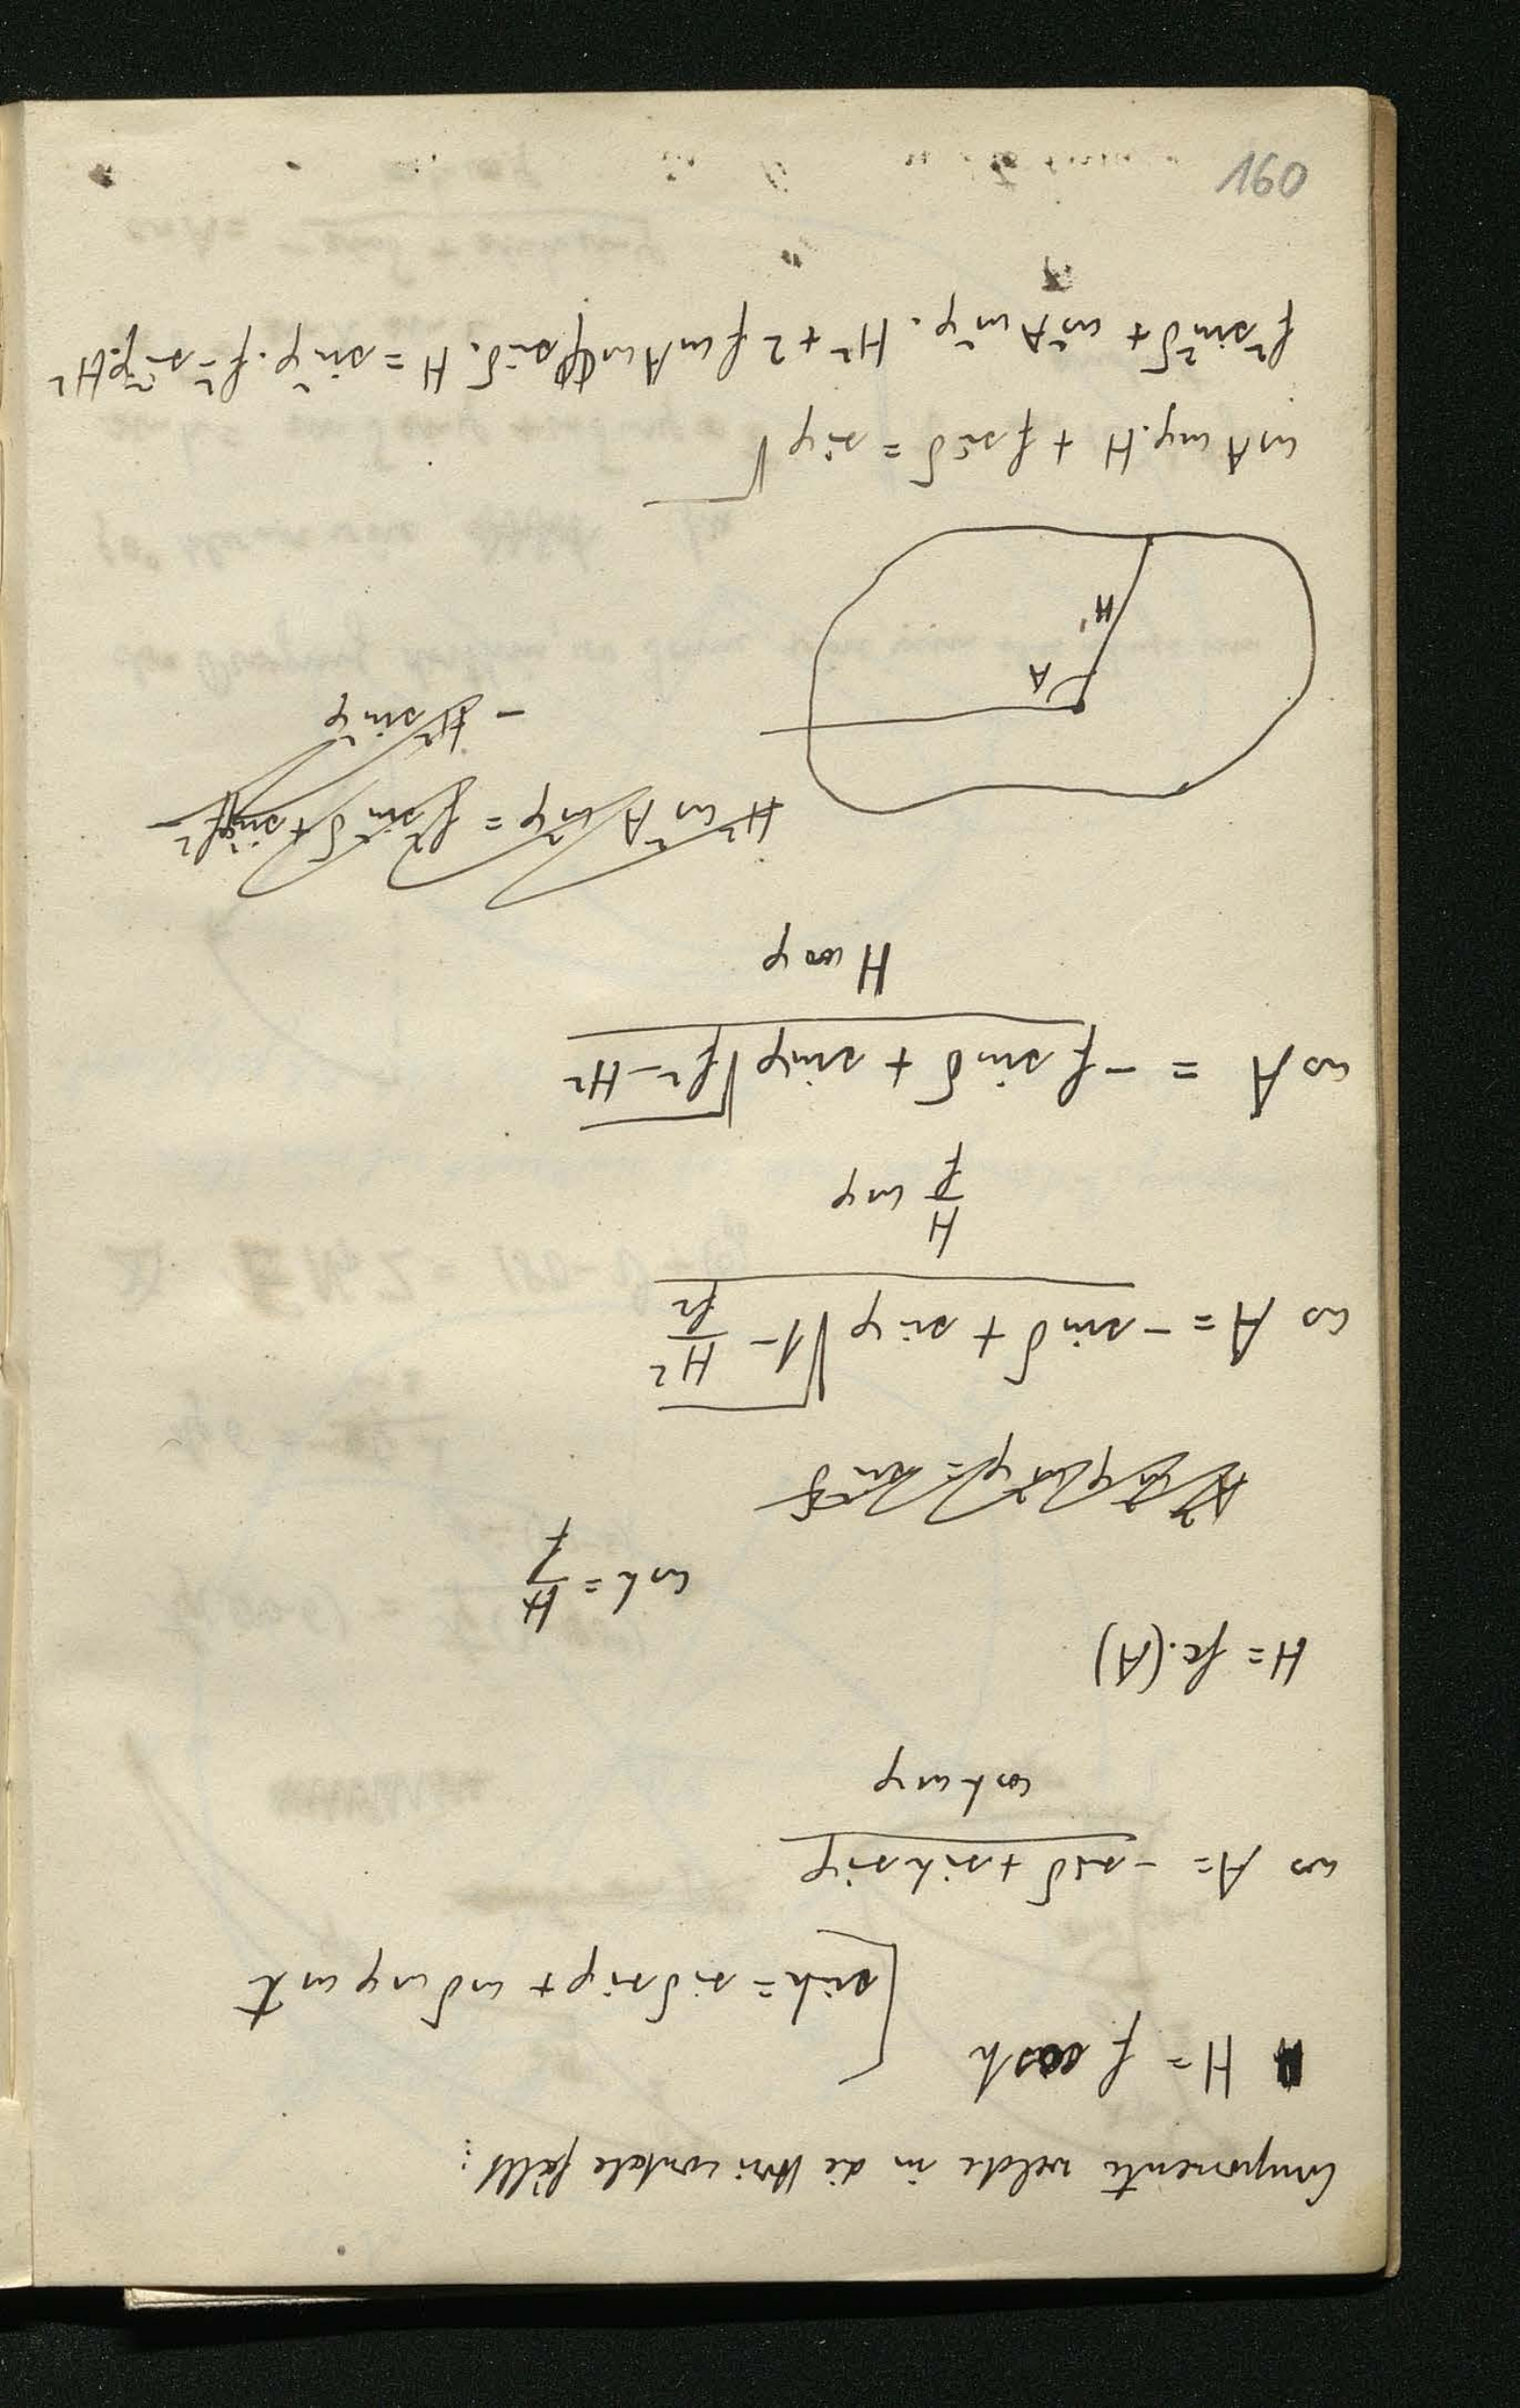 Componente welche in die Horizontale fällt:
H = f cos h
[sin h = sin δ sin φ + cos δ cos φ cos t
cos A = - sin δ + sin h sin φ
cos h cos φ
H = fc. (A)
cos h = H/f
cos A = - sin δ + sin φ √1 - H²/f²
H/f cos φ
cos A = - f sin δ + sin φ √f² - H²
H cos φ
H² cos² A cos² φ = f² sin² δ + sin² φ f²
- H² sin² φ
A
H
cos A cos φ. H + f sin δ = sin φ √
f² sin² δ + cos² A cos² φ. H² + 2 f cos A cos φ sin δ. H = sin² φ. f² - sin² φ. H²
160